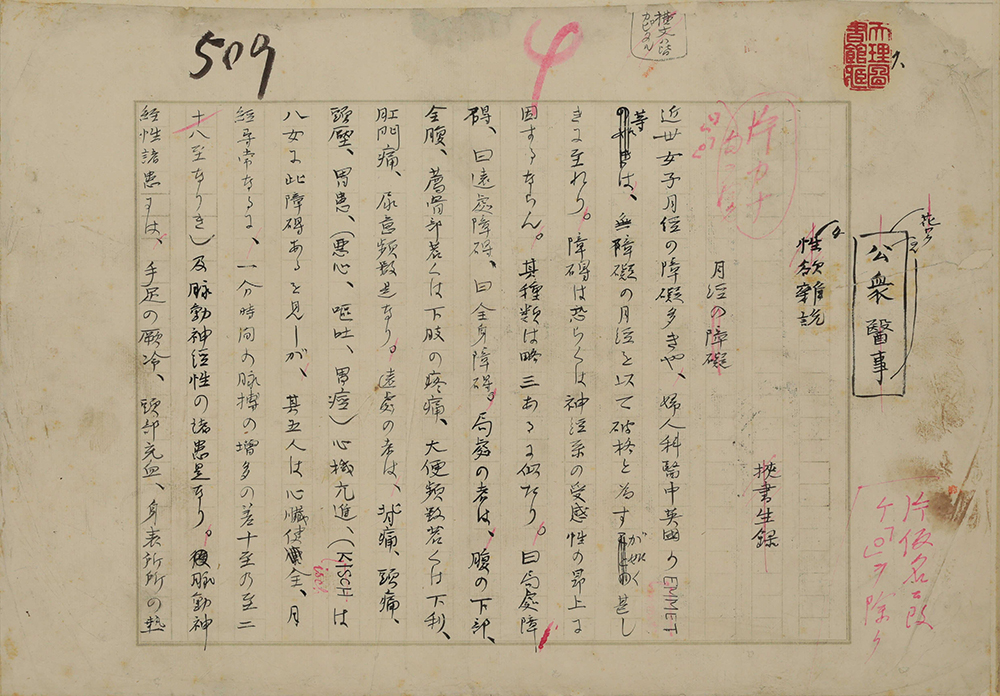 509
天理圖
書館蔵
公衆醫事
性欲雑説
挾書生録
月経の障礙
近世女子月経の障礙多きや、婦人科醫中英國のEMMET
等は、無障礙の月経を以て破格と為すが如く甚し
きに至れり。障碍は恐らくは神経系の受感性の昂上に
因するならん。其種類は略三あるに似たり。曰局處障
碍、曰遠處障碍、曰全身障碍。局處の者は、腹の下部、
全腹、薦骨部若くは下肢の疼痛、大便頻数若くは下利、
肛門痛、尿意頻数是なり。遠處の者は、
頭痛、
頭壓、胃患、(悪心、嘔吐、胃痙)心機亢進、(KISCHは
八女に此障碍あるを見しが、其五人は心臓健全、月
経尋常なるに、一分時間の脉搏の増多の差十至乃至二
十八至なりき)及脉動神経性の諸患是なり。脉動神
経性諸患とは、手足の厥冷、頭部充血、身表所所の熱
片カナ
片仮名ニ改
ヲ除ク